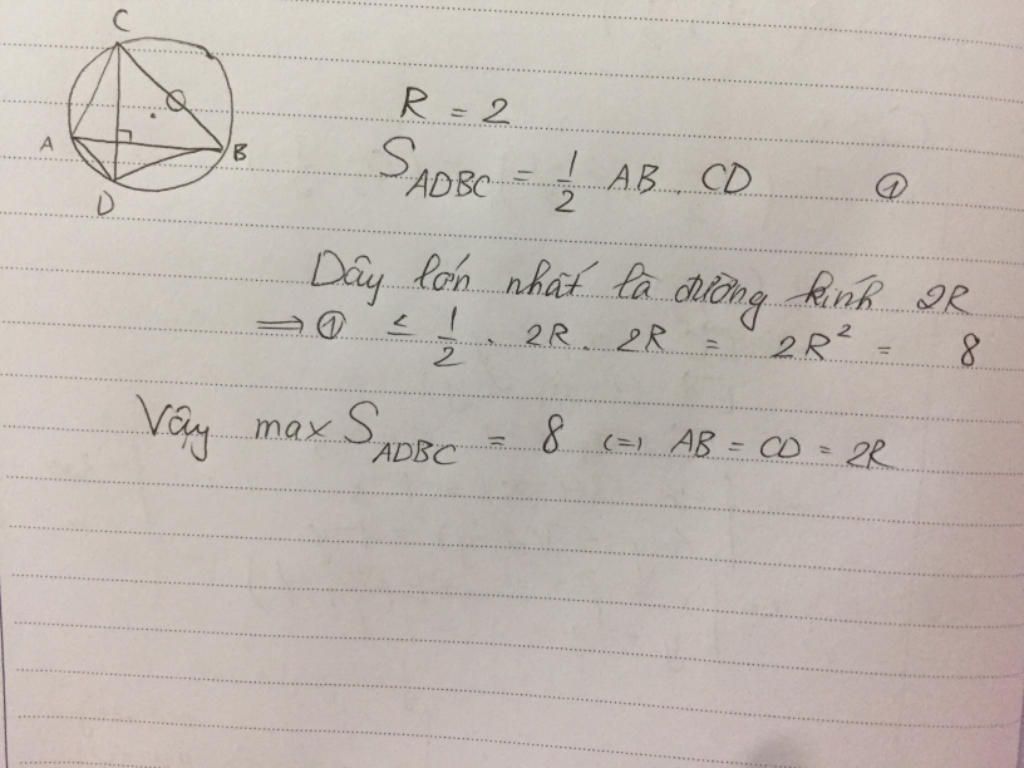 C
A
B
D
O
R = 2
S_ADBC = 1/2 AB . CD ①
Dây lớn nhất là đường kính 2R
⟹ ① ≤ 1/2 . 2R . 2R = 2R² = 8
Vậy max S_ADBC = 8 (=) AB = CD = 2R